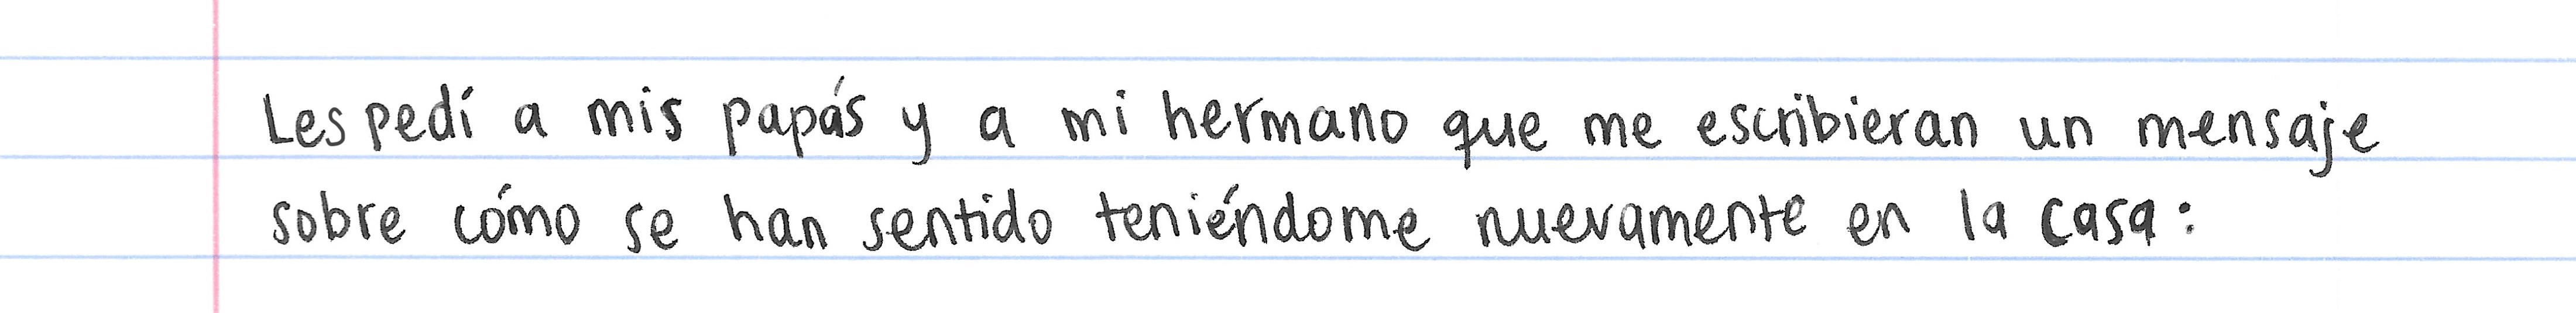 Les pedí a mis papás y a mi hermano que me escribieran un mensaje
sobre cómo se han sentido teniéndome nuevamente en la casa: